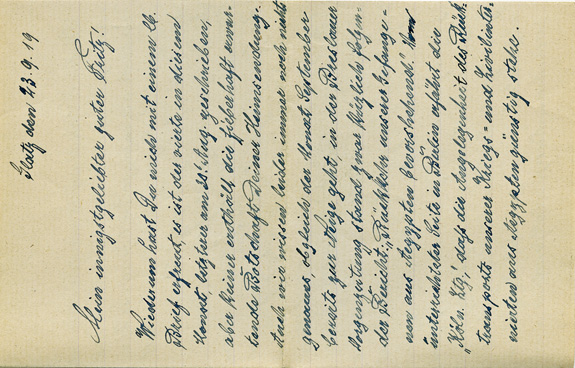 Glatz den 23.9.19
Mein innigstgeliebter guter Fritz!
Wiederum hast Du mich mit einem lb.
Brief erfreut, es ist der vierte in diesem
Monat, letzterer am 28. Aug. geschrieben,
aber keiner enthält die fieberhaft erwar-
tende Botschaft Deiner Heimsendung.
Auch wir wissen leider immer noch nichts
genaues, obgleich der Monat September
bereits zur Neige geht, in der Breslauer
Morgenzeitung stand zwar kürzlich folgen-
der Bericht: „Rückkehr unserer Gefange-
nen aus Aegypten bevorstehend." Von
unterrichteter Seite in Berlin erfährt die
„Köln. Ztg.", daß die Angelegenheit des Rück-
transports unserer Kriegs- und Zivilinter-
nierten aus Aegypten günstig stehe.